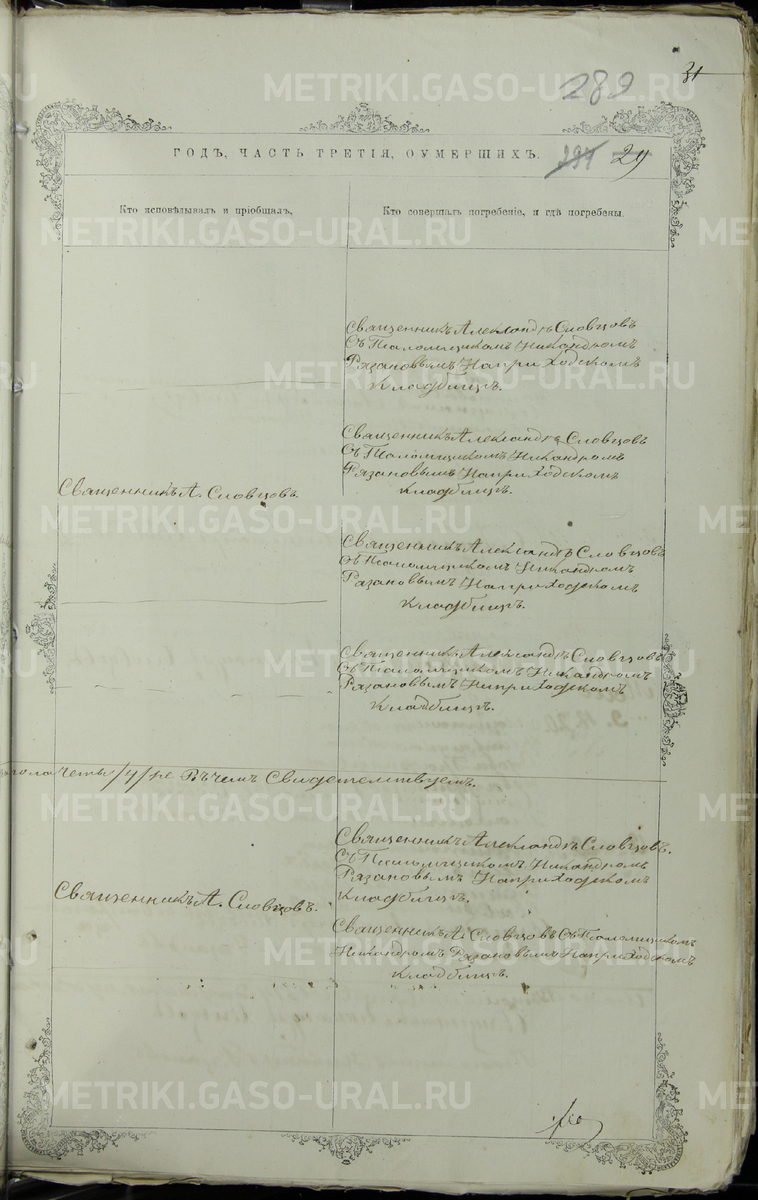 31
289
ГОДЪ, ЧАСТЬ ТРЕТІЯ, О УМЕРШИХЪ.
291 29
Кто исповѣдывалъ и пріобщалъ,
Кто совершалъ погребеніе, и гдѣ погребены.
Священникъ Александръ Словцовъ
Съ Псаломщикомъ Никандромъ
Рязановымъ На приходскомъ
Кладбищѣ.
Священникъ Александръ Словцовъ
Съ Псаломщикомъ Никандромъ
Рязановымъ На приходскомъ
Кладбищѣ.
Священникъ А. Словцовъ
Священникъ Александръ Словцовъ
Съ Псаломщикомъ Никандромъ
Рязановымъ На приходскомъ
Кладбищѣ.
Священникъ Александръ Словцовъ
Съ Псаломщикомъ Никандромъ
Рязановымъ На приходскомъ
Кладбищѣ.
пола четы /4/ ре Въ чемъ Свидетелствуемъ.
Священникъ Александръ Словцовъ.
Съ Псаломщикомъ Никандромъ
Рязановымъ На приходскомъ
Кладбищѣ.
Священникъ А. Словцовъ.
Священникъ А. Словцовъ Съ Псаломщикомъ
Никандромъ Рязановымъ На приходскомъ
Кладбищѣ.
METRIKI.GASO-URAL.RU